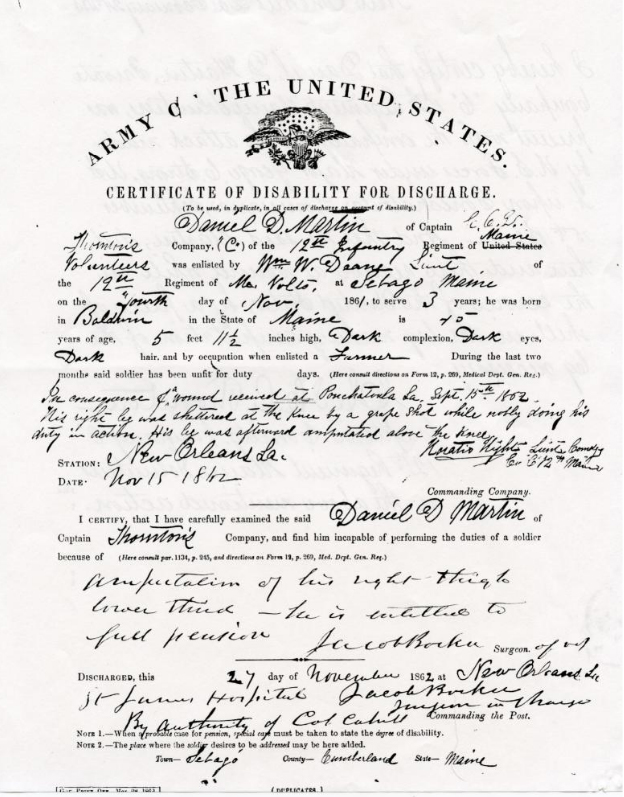 ARMY OF THE UNITED STATES.
CERTIFICATE OF DISABILITY FOR DISCHARGE.
(To be used, in duplicate, in all cases of discharge on account of disability.)
Daniel D. Martin of Captain
Thornton's Company, (C) of the 12th Infantry Regiment of United States Maine
Volunteers was enlisted by Wm W. Deane Lieut of
the 12th Regiment of Me. Volts, at Sebago Maine
on the Fourth day of Nov, 1861, to serve 3 years; he was born
in Baldwin in the State of Maine is 45
years of age, 5 feet 11 1/2 inches high, Dark complexion, Dark eyes,
Dark hair, and by occupation when enlisted a Farmer During the last two
months said soldier has been unfit for duty days. (Here consult directions on Form 12, p. 269, Medical Dept. Gen. Reg.)
In consequence of wound received at Ponchatoula La, Sept. 15th 1862.
His right leg was shattered at the Knee by a grape Shot while nobly doing his
duty in action. His leg was afterward amputated above the Knee
Horatio Hight Lieut Comdg
Co. C 12th Maine
STATION: New Orleans La.
DATE: Nov 15 1862
Commanding Company.
I CERTIFY, that I have carefully examined the said Daniel D Martin of
Captain Thornton's Company, and find him incapable of performing the duties of a soldier
because of (Here consult par. 1134, p. 245, and directions on Form 12, p. 269, Med. Dept. Gen. Reg.)
Amputation of his right thigh
lower third – he is entitled to
full pension
Jacob Bockee Surgeon.
DISCHARGED, this 27 day of November 1862 at New Orleans La
St James Hospital Jacob Bockee
Surgeon in Charge
By Authority of Col Cahill Commanding the Post.
NOTE 1.—When a probable case for pension, special care must be taken to state the degree of disability.
NOTE 2.—The place where the soldier desires to be addressed may be here added.
Town—Sebago County—Cumberland State—Maine
(DUPLICATES.)